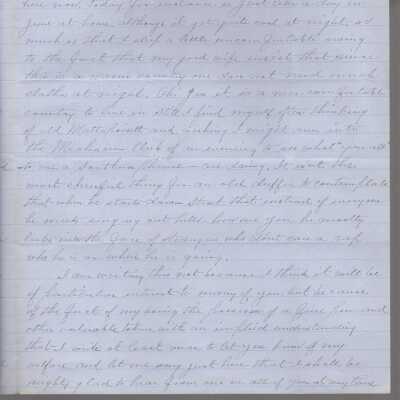 here now. Today for instance is just like a day in
June at home although it gets quite cool at night, so
much so that I slept a little uncomfortable owing
to the fact that my good wife insist that since
this is a warm country one does not need much
clothes at night. Oh Yes it is a nice comfortable
country to live in still I find myself often thinking
of old Wattapoisett and wishing I might run into
the Club of an evening to see what
to me a familiar - one thing. It isnt the
most cheerful thing for an old duffer to contemplate
that when he starts down street that instead of everyone
he meets sing out hello how are you, he mostly
looks into the face of strangers who dont care a rap
who he is or where he is going.
I am writing this not because I think it will be
of particular interest to many of you, but because
of the fact of my being the possessor of a fine pen and
other valuable token with an implied understanding
that I write at least once to let you know of my
welfare and let me say just here that I shall be
mighty glad to hear from one or all of you at any time